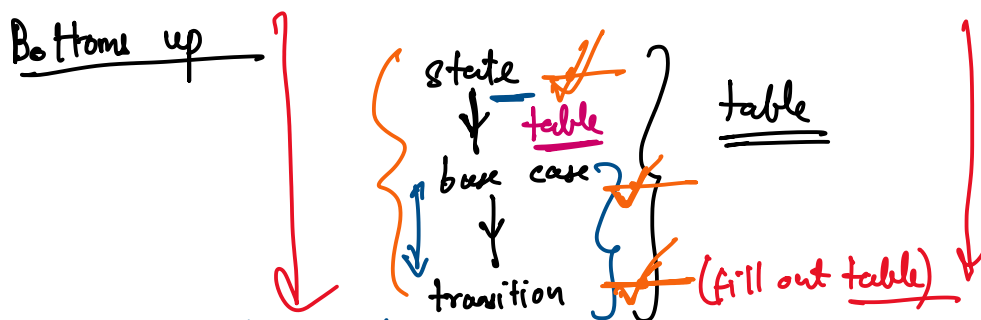 Bottoms up
state
table
table
base case
transition (fill out table)